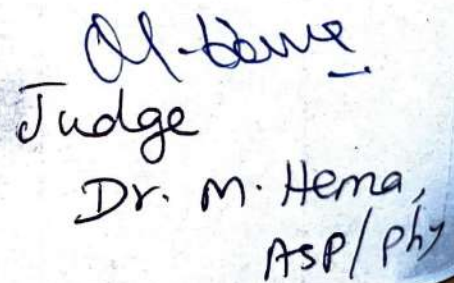 M. Hema
Judge
Dr. M. Hema,
ASP/Phy